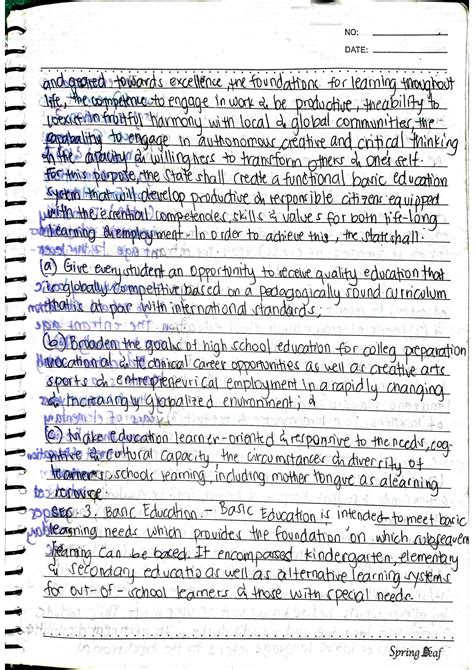 NO:
DATE:
and geared towards excellence, the foundations for learning throughout
life, the competence to engage in work & be productive, the ability to
coexist in fruitful harmony with local & global communities, the
capability to engage in authonomous, creative and critical thinking
& the capacity & willingness to transform others & one's self.
for this purpose, the State shall create a functional basic education
system that will develop productive & responsible citizens equipped
with the essential competencies, skills & values for both life-long
learning & employment. In order to achieve this, the state shall:
(a) Give every student an opportunity to receive quality education that
is globally competitive based on a pedagogically sound curriculum
that is at par with international standards;
(b) Broaden the goals of high school education for colleg preparation
vocational & technical career opportunities as well as creative arts
sports & entrepreneurical employment in a rapidly changing
& increasingly globalized environment; &
(c) Make education learner-oriented & responsive to the needs, cog-
nitive & cultural capacity the circumstances & diversity of
learners, schools learning, including mother tongue as a learning
resource.
SEC. 3. Basic Education. - Basic Education is intended to meet basic
learning needs which provides the foundation on which subsequen
learning can be based. It encompassed kindergarten, elementary
& secondary educatio as well as alternative learning systems
for out-of-school learners & those with special needs.
Spring Leaf